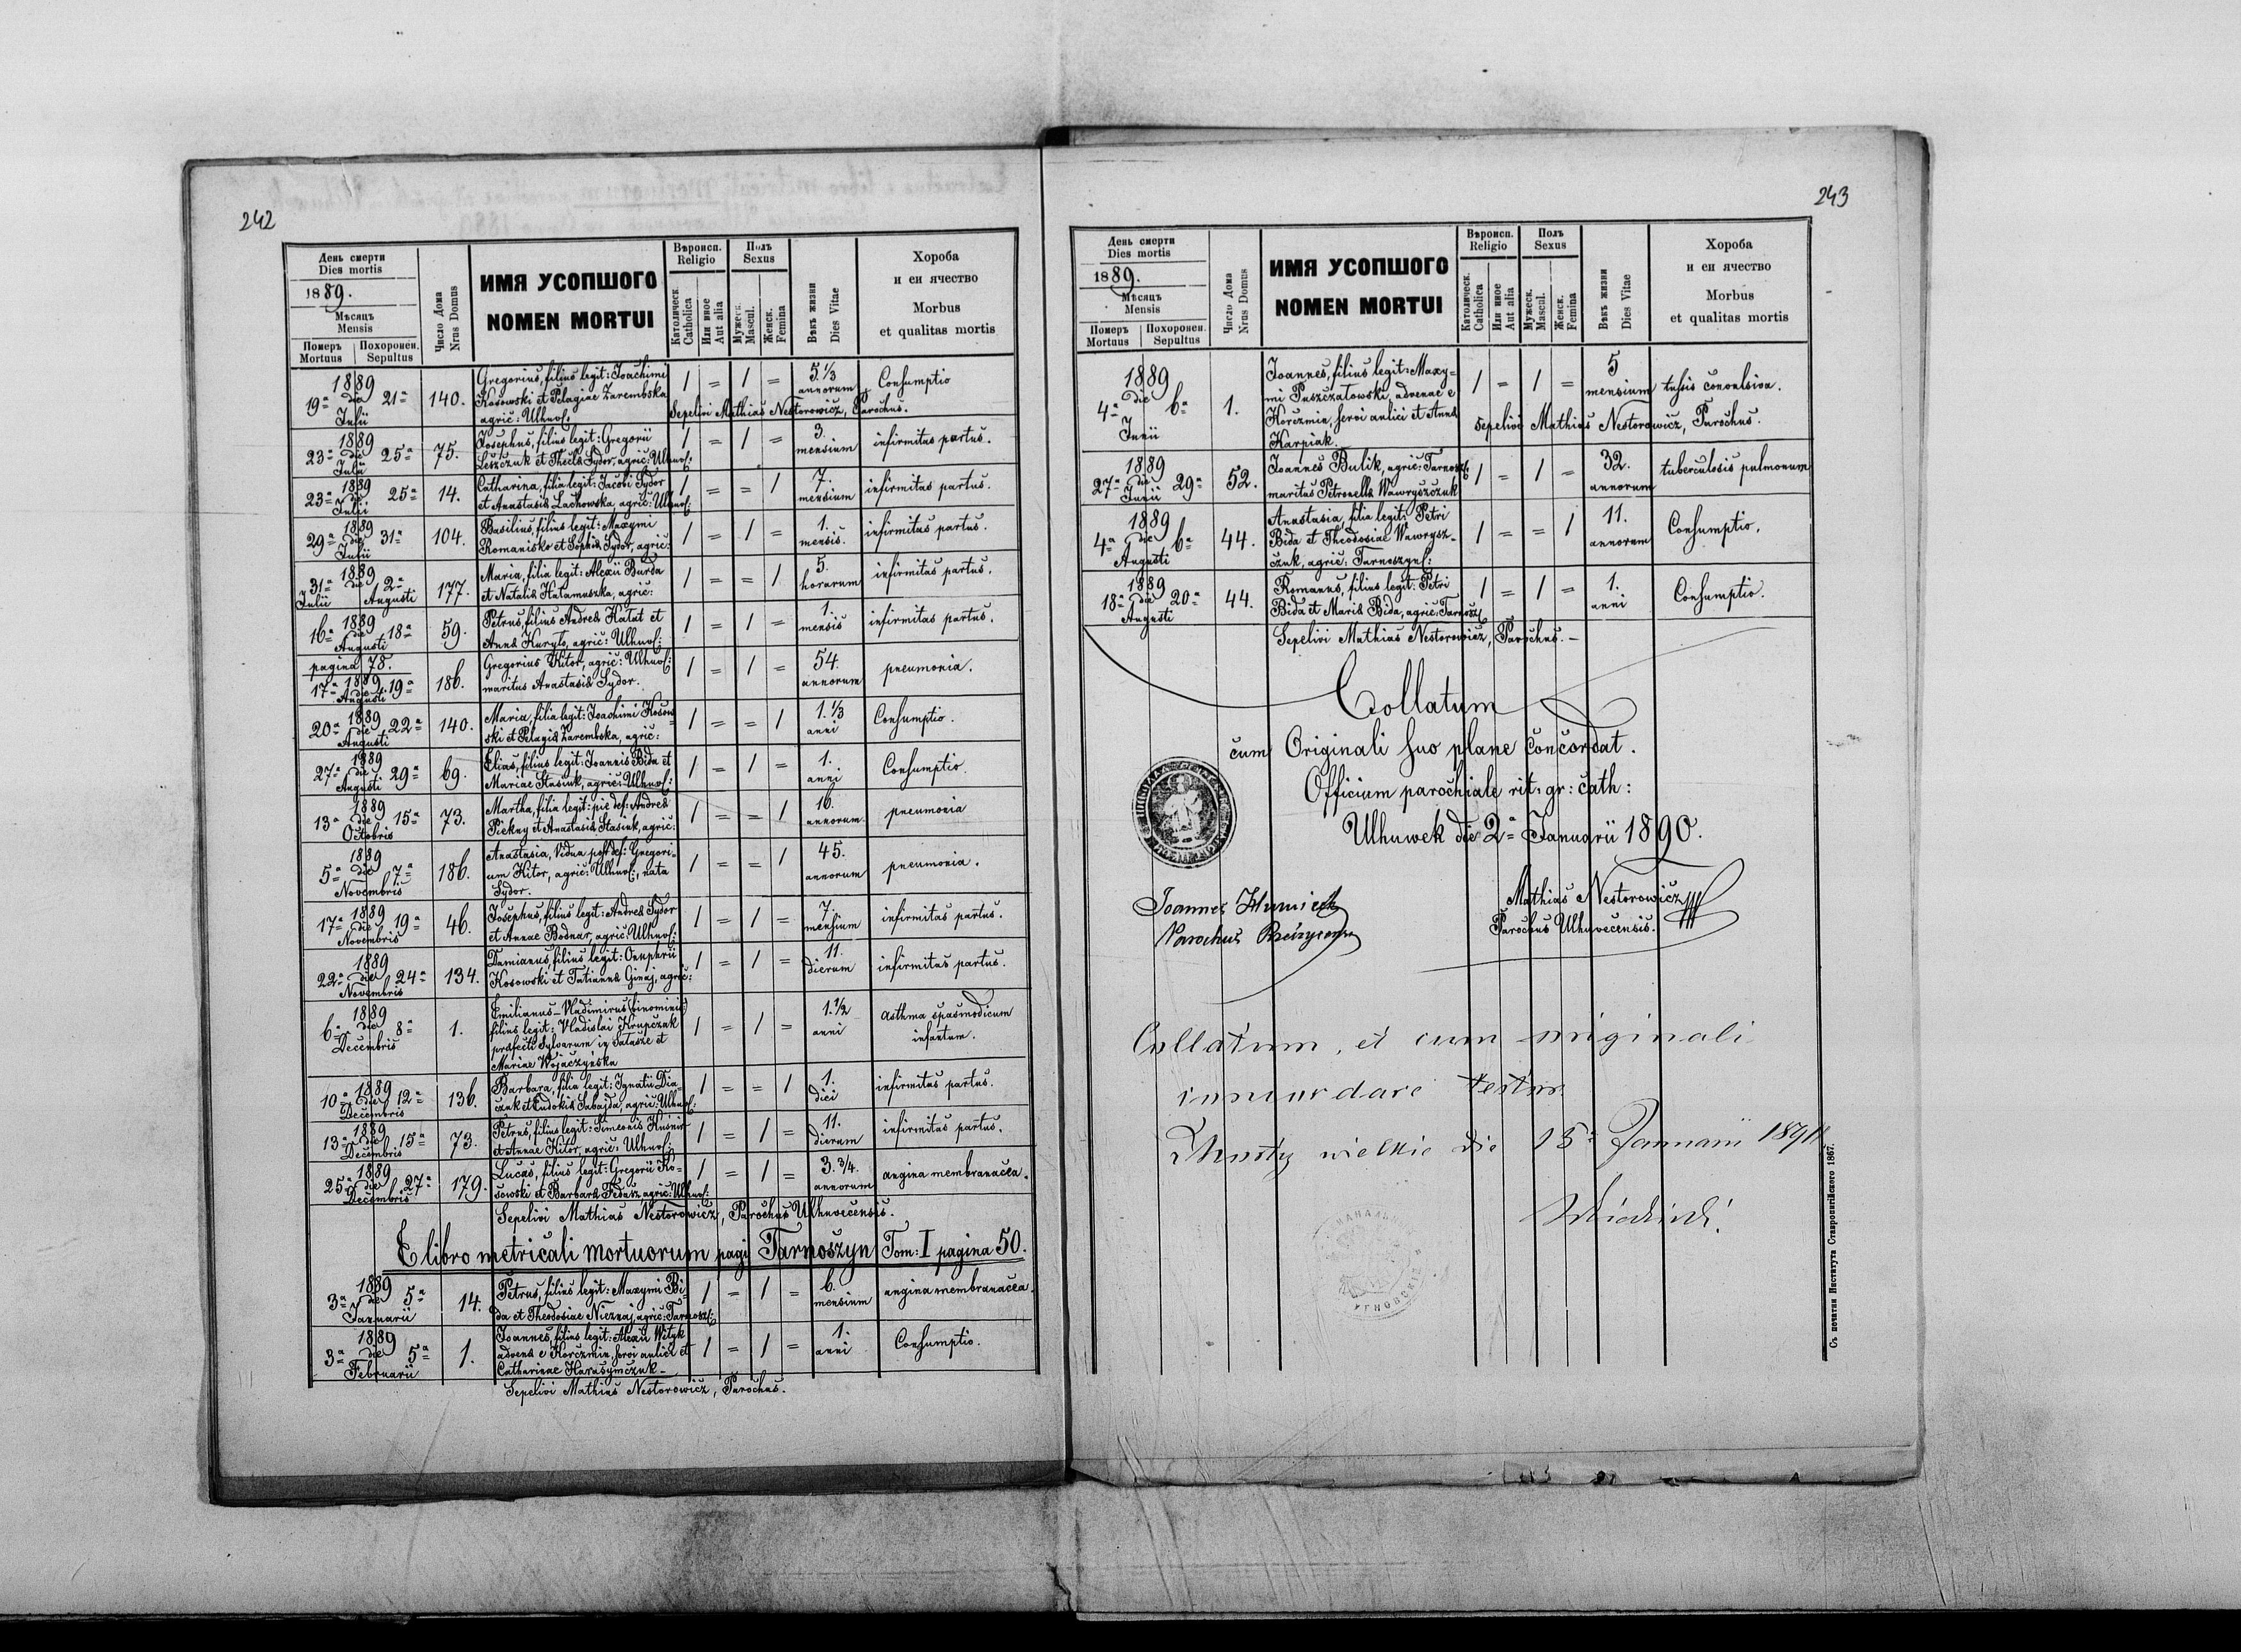 242
День смерти
Dies mortis
1889.
Мѣсяцъ
Mensis
Померъ Похоронен.
Mortuus Sepultus
Число Дома
Nrus Domus
ИМЯ УСОПШОГО
NOMEN MORTUI
Вѣроисп.
Religio
Католическ.
Catholica
Или иное
Aut alia
Полъ
Sexus
Мужеск.
Mascul.
Женск.
Femina
Вѣкъ жизни
Dies Vitae
Хороба
и еи ячество
Morbus
et qualitas mortis
1889
19ª die Julii 21ª 140. Gregorius, filius legit: Joachimi
Kosowski et Pelagiae Zarembska
agric: Ulhuv: 1 = 1 = 5 1/3 annorum Consumptio
Sepelivi Mathias Nestorowicz, Parochus.
1889
23ª die Julii 25ª 75. Josephus, filius legit: Gregorii
Leszczuk et Thecla Sydor, agric: Ulhuv: 1 = 1 = 3. mensium infirmitas partus.
1889
23ª die Julii 25ª 14. Catharina, filia legit: Jacobi Sydor
et Anastasia Lachowska, agric: Ulhuv: 1 = = 1 7. mensium infirmitas partus.
1889
29ª die Julii 31ª 104. Basilius, filius legit: Maxymi
Romanisko et Sophia Sydor, agric: 1 = 1 = 1. mensis. infirmitas partus.
1889
31ª die Julii 2ª Augusti 177. Maria, filia legit: Alexii Burda
et Natalia Hałamuszka, agric: 1 = = 1 5. horarum infirmitas partus.
1889
16ª die Augusti 18ª 59. Petrus, filius Andrea Hałat et
Anna Kuryło, agric: Ulhuv: 1 = 1 = 1. mensis infirmitas partus.
pagina 78.
1889
17ª die Augusti 19ª 186. Gregorius Kitor, agric: Ulhuv:
maritus Anastasia Sydor. 1 = 1 = 54. annorum pneumonia.
1889
20ª die Augusti 22ª 140. Maria, filia legit: Joachimi Kosow-
ski et Pelagia Zarembska, agric: 1 = = 1 1 1/3 anni Consumptio.
1889
27ª die Augusti 29ª 69. Elias, filius legit: Joannis Bida et
Mariae Stasiuk, agric: Ulhuv: 1 = 1 = 1. anni Consumptio.
1889
13ª die Octobris 15ª 73. Martha, filia legit: pie def: Andrea
Piekny et Anastasia Stasiuk, agric: 1 = = 1 16. annorum pneumonia
1889
5ª die Novembris 7ª 186. Anastasia, Vidua post def: Gregori-
um Kitor, agric: Ulhuv:, nata
Sydor. 1 = = 1 45. annorum pneumonia.
1889
17ª die Novembris 19ª 46. Josephus, filius legit: Andrea Sydor
et Annae Bodnar, agric: Ulhuv: 1 = 1 = 7. mensium infirmitas partus.
1889
22ª die Novembris 24ª 134. Damianus, filius legit: Onuphrii
Kosowski et Tatianna Ginaj, agric: 1 = 1 = 11. dierum infirmitas partus.
1889
6ª die Decembris 8ª 1. Emilianus-Vladimirus (binominis)
filius legit: Vladislai Krupczak
praefecti Sylvarum in Sałasze et
Mariae Wojaczyńska 1 = 1 = 1 1/2 anni asthma spasmodicum
infantum.
1889
10ª die Decembris 12ª 136. Barbara, filia legit: Ignatii Dia-
czuk et Eudokia Sabajda, agric: Ulhuv: 1 = = 1 1. diei infirmitas partus.
1889
13ª die Decembris 15ª 73. Petrus, filius legit: Simeonis Kuśnir
et Annae Kitor, agric: Ulhuv: 1 = 1 = 11. dierum infirmitas partus.
1889
25ª die Decembris 27ª 179. Lucas, filius legit: Gregorii Ko-
sowski et Barbara Fedasz, agric: Ulhuv: 1 = 1 = 3. 3/4. annorum angina membranacea.
Sepelivi Mathias Nestorowicz, Parochus Ulhuvecensis.
E libro metricali mortuorum pagi Tarnoszyn Tom: I pagina 50.
1889
3ª die Januarii 5ª 14. Petrus, filius legit: Maxymi Bi-
da et Theodosiae Nieznaj, agric: Tarnosz: 1 = 1 = 6. mensium angina membranacea.
1889
3ª die Februarii 5ª 1. Joannes, filius legit: Alexii Wityk
advena e Korczmin, servi aulici et
Catharinae Harasymczuk 1 = 1 = 1. anni Consumptio.
Sepelivi Mathias Nestorowicz, Parochus.
243
День смерти
Dies mortis
1889.
Мѣсяцъ
Mensis
Померъ Похоронен.
Mortuus Sepultus
Число Дома
Nrus Domus
ИМЯ УСОПШОГО
NOMEN MORTUI
Вѣроисп.
Religio
Католическ.
Catholica
Или иное
Aut alia
Полъ
Sexus
Мужеск.
Mascul.
Женск.
Femina
Вѣкъ жизни
Dies Vitae
Хороба
и еи ячество
Morbus
et qualitas mortis
1889
4ª die Junii 6ª 1. Joannes, filius legit: Maxy-
mi Puszczatowski, advenae e
Korczmin, servi aulici et Anna
Karpiak. 1 = 1 = 5 mensium tussis convulsiva.
Sepelivi Mathias Nestorowicz, Parochus.
1889
27ª die Junii 29ª 52. Joannes Bulik, agric: Tarnosz:
maritus Petronella Wawryszczuk 1 = 1 = 32. annorum tuberculosis pulmonum
1889
4ª die Augusti 6ª 44. Anastasia, filia legit: Petri
Bida et Theodosiae Wawrysz-
czuk, agric: Tarnoszyn: 1 = = 1 11. annorum Consumptio.
1889
18ª die Augusti 20ª 44. Romanus, filius legit: Petri
Bida et Maria Bida, agric: Tarnosz: 1 = 1 = 1. anni Consumptio.
Sepelivi Mathias Nestorowicz, Parochus. –
Collatum
cum Originali suo plane concordat.
Officium parochiale rit: gr: cath:
Ulhuwek die 2ª Januarii 1890.
Joannes
Parochus
Mathias Nestorowicz
Parochus Ulhuvecensis.
Collatum, et cum originali
concordare testor
Chusty wielkie die 15ª Januarii 1891
Съ печатни Института Ставропигійского 1867.